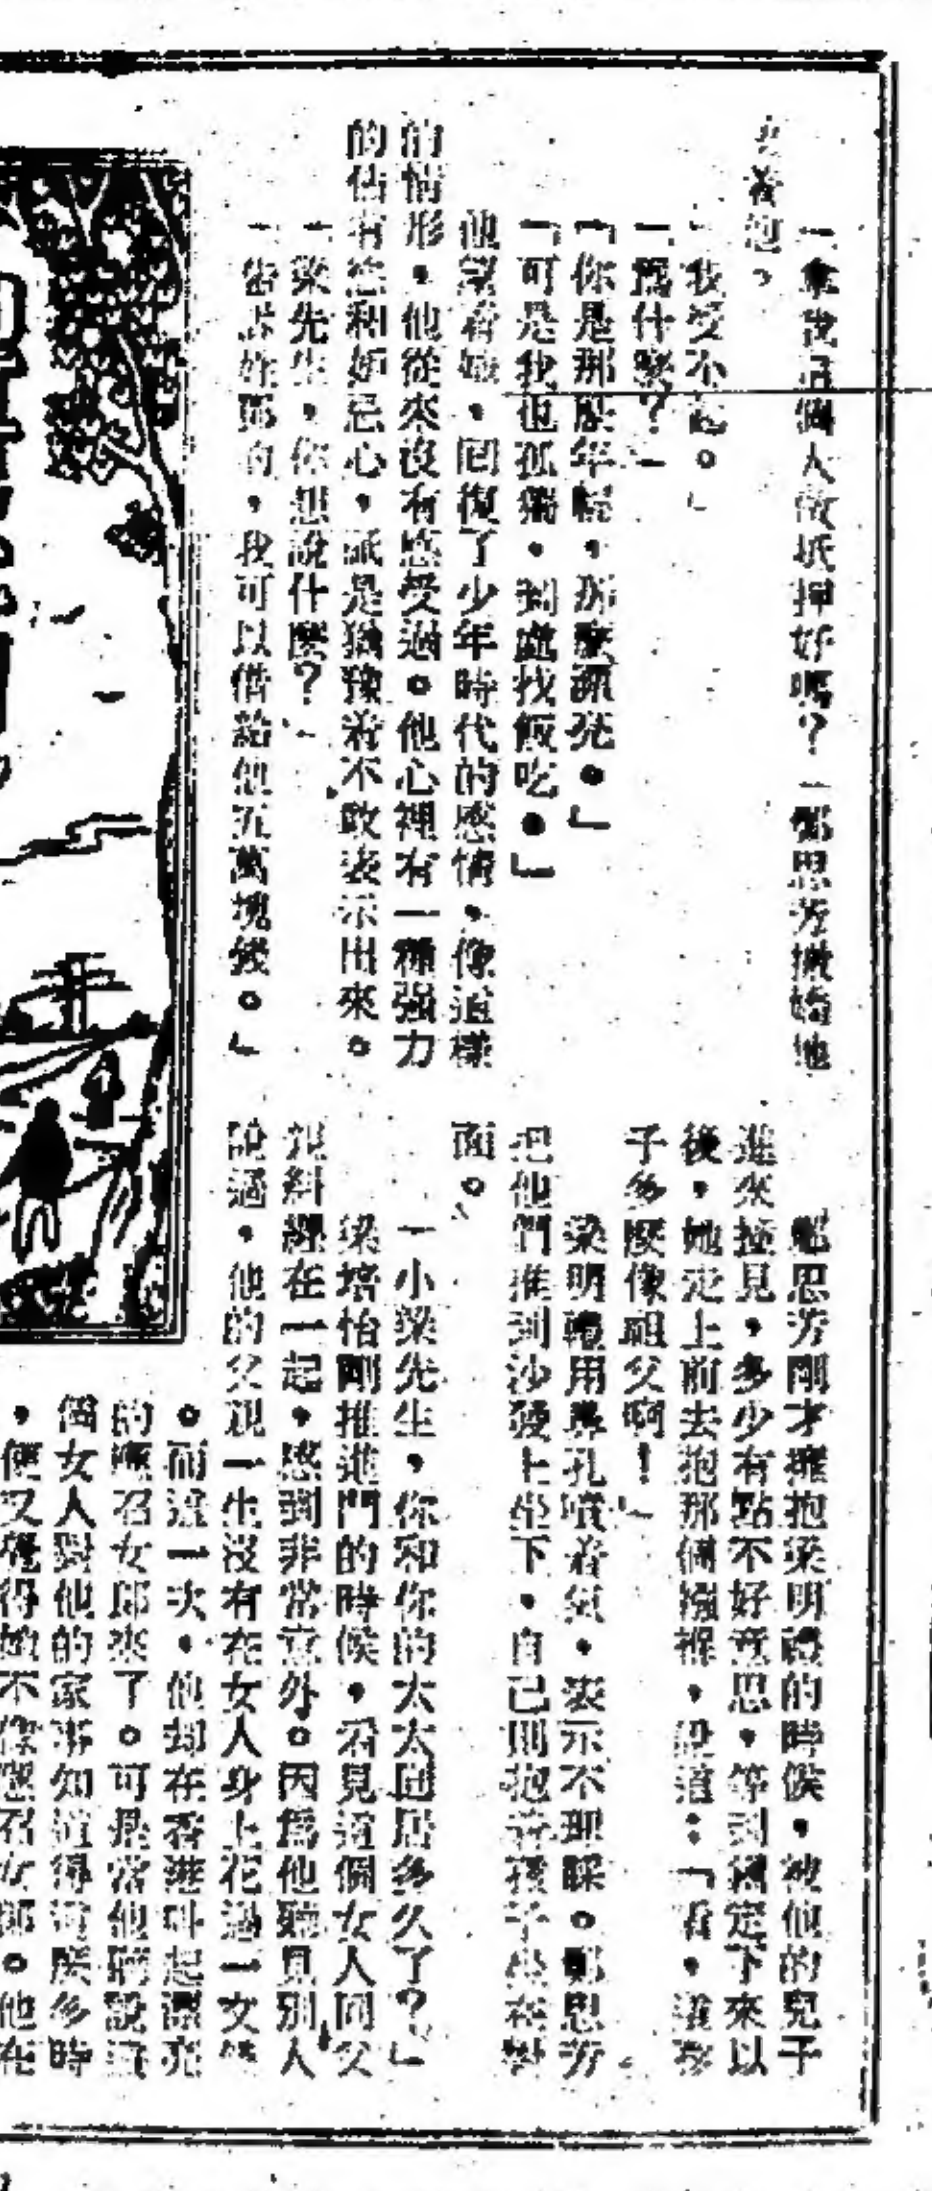 「拿我這個人做抵押好嗎？」鄭思芳撒嬌地
着她。
「我受不起。」
「爲什麼？」
「你是那麼年輕，那麼漂亮。」
「可是我也孤獨，到處找飯吃。」
他望着她，回復了少年時代的感情，像這樣
的情形，他從來沒有感受過。他心裡有一種强力
的佔有慾和妒忌心，祇是猶豫着不敢表示出來。
「梁先生，你想說什麼？」
「告訴姓鄭的，我可以借給他五萬塊錢。」
鄭思芳剛才擁抱梁明禮的時候，被他的兒子
進來撞見，多少有點不好意思，等到鎮定下來以
後，她走上前去抱那個孩，說道：「看，這孩
子多麼像祖父啊！」
梁明禮用鼻孔噴着氣，表示不理睬。鄭思芳
把他們推到沙發上坐下，自己則抱着孩子坐在對
面。
「小梁先生，你和你的太太同居多久了？」
梁培怡剛推進門的時候，看見這個女人同父
親糾纏在一起，感到非常意外。因爲他聽見別人
說過，他的父親一生沒有在女人身上花過一文錢
。而這一次，他却在香港叫起漂亮
的應召女郎來了。可是當他聽說這
個女人對他的家事知道得這麼多時
，便又覺得她不像應召女郎。他在